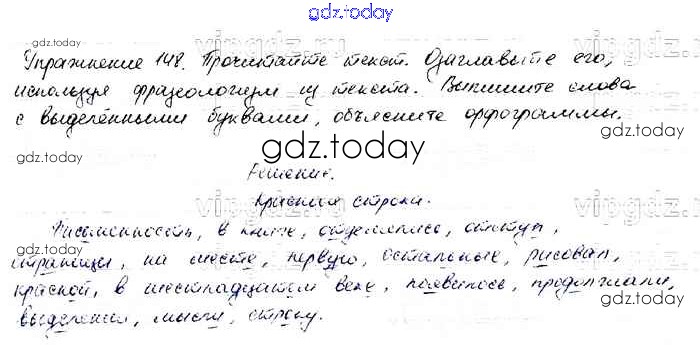 gdz.today
Упражнение 148. Прочитайте текст. Озаглавьте его,
используя фразеологизм из текста. Выпишите слова
с выделенными буквами, объясните орфограммы.
gdz.today
Решение.
Красная строка.
Письменность, в книге, отделялись, отступ,
страницы, на месте, первую, остальные, рисовал,
красной, в шестнадцатом веке, появилось, продолжали,
выделении, мысли, строку.